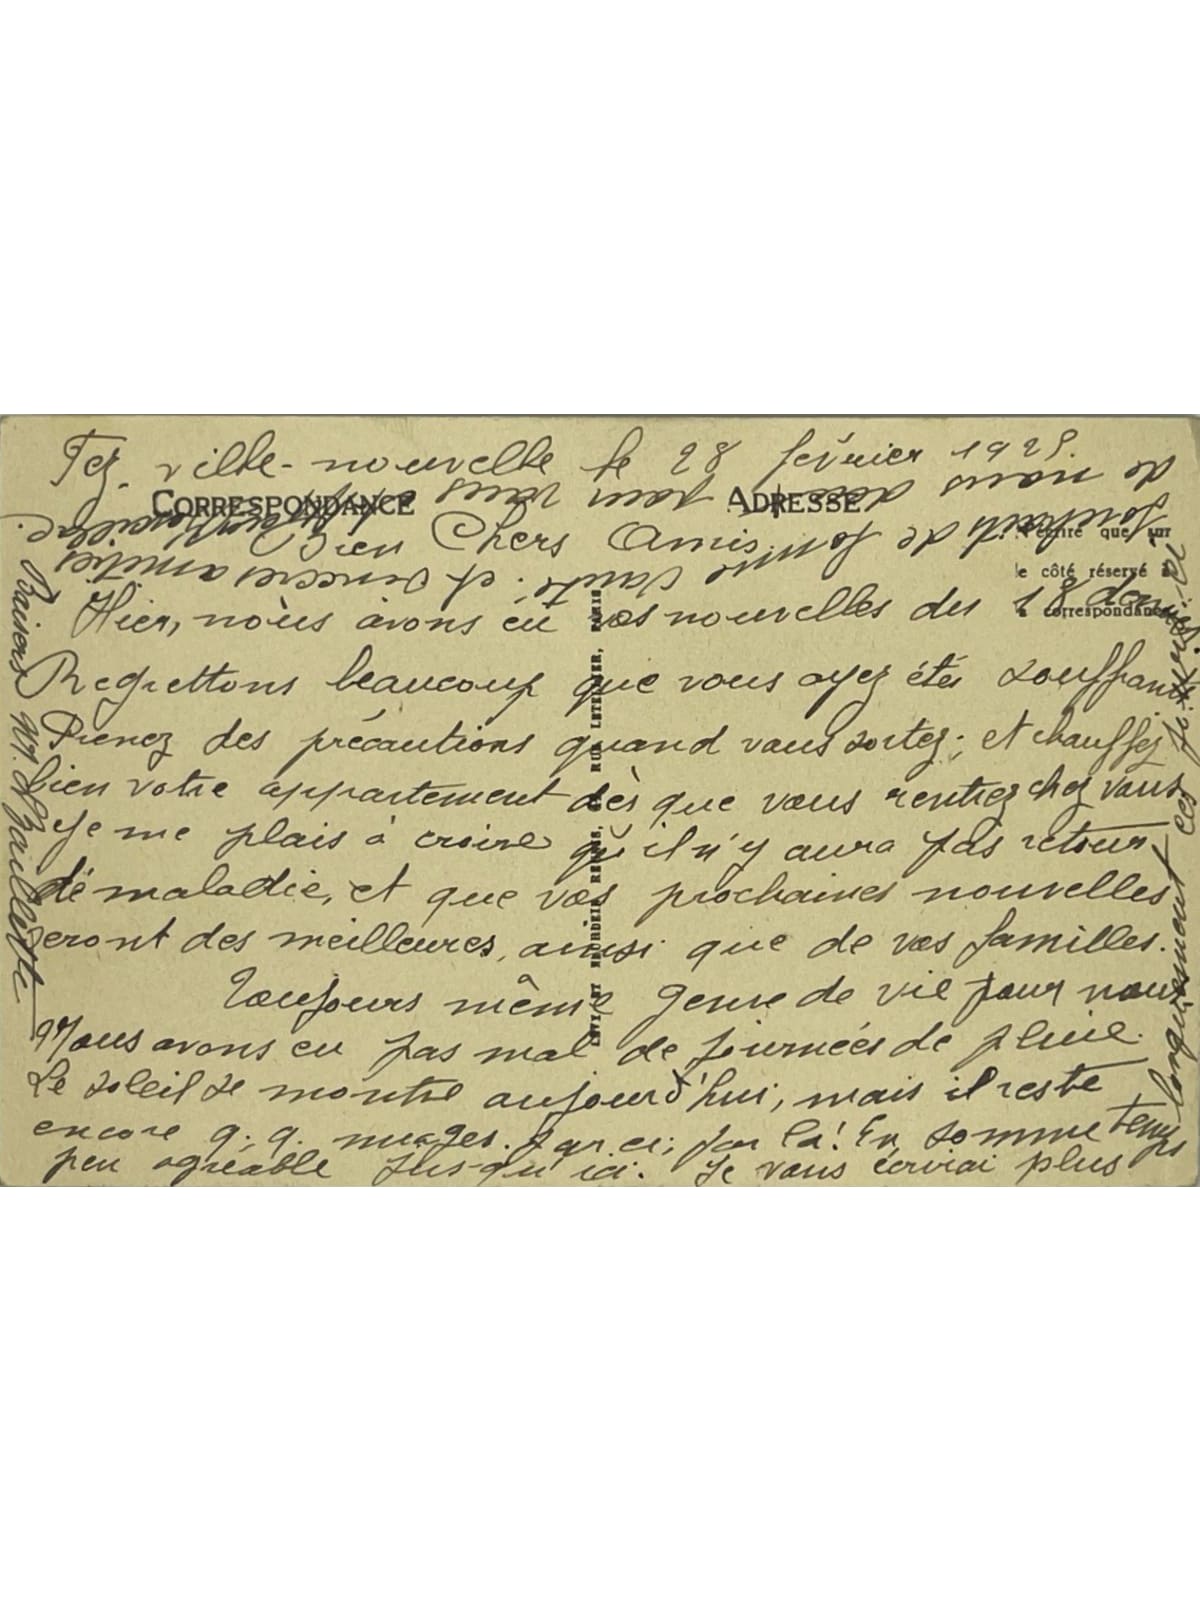 Fez. ville-nouvelle le 28 février 1929.
CORRESPONDANCE
ADRESSE
N'écrire que sur
le côté réservé à
la correspondance
Bien Chers Amis,
Hier, nous avons eu vos nouvelles du 18 dernier
Regrettons beaucoup que vous ayez étés souffants
Prenez des précautions quand vous sortez; et chauffez
bien votre appartement dès que vous rentrez chez vous
Je me plais à croire qu'il n'y aura pas retour
de maladie, et que vos prochaines nouvelles
seront des meilleures, ainsi que de vos familles.
Toujours même genre de vie pour nous
Nous avons eu pas mal de journées de pluie.
Le soleil se montre aujourd'hui, mais il reste
encore q. q. nuages. par ci; par là! En somme temps
peu agréable jusqu'ici. Je vous écrirai plus
longuement ces jours-ci.
de nous deux pour vous
souhaits de bonne santé. et sincères amitiés
Baisers
LÉVY ET NEURDEIN RÉUNIS, RUE LETELLIER, PARIS